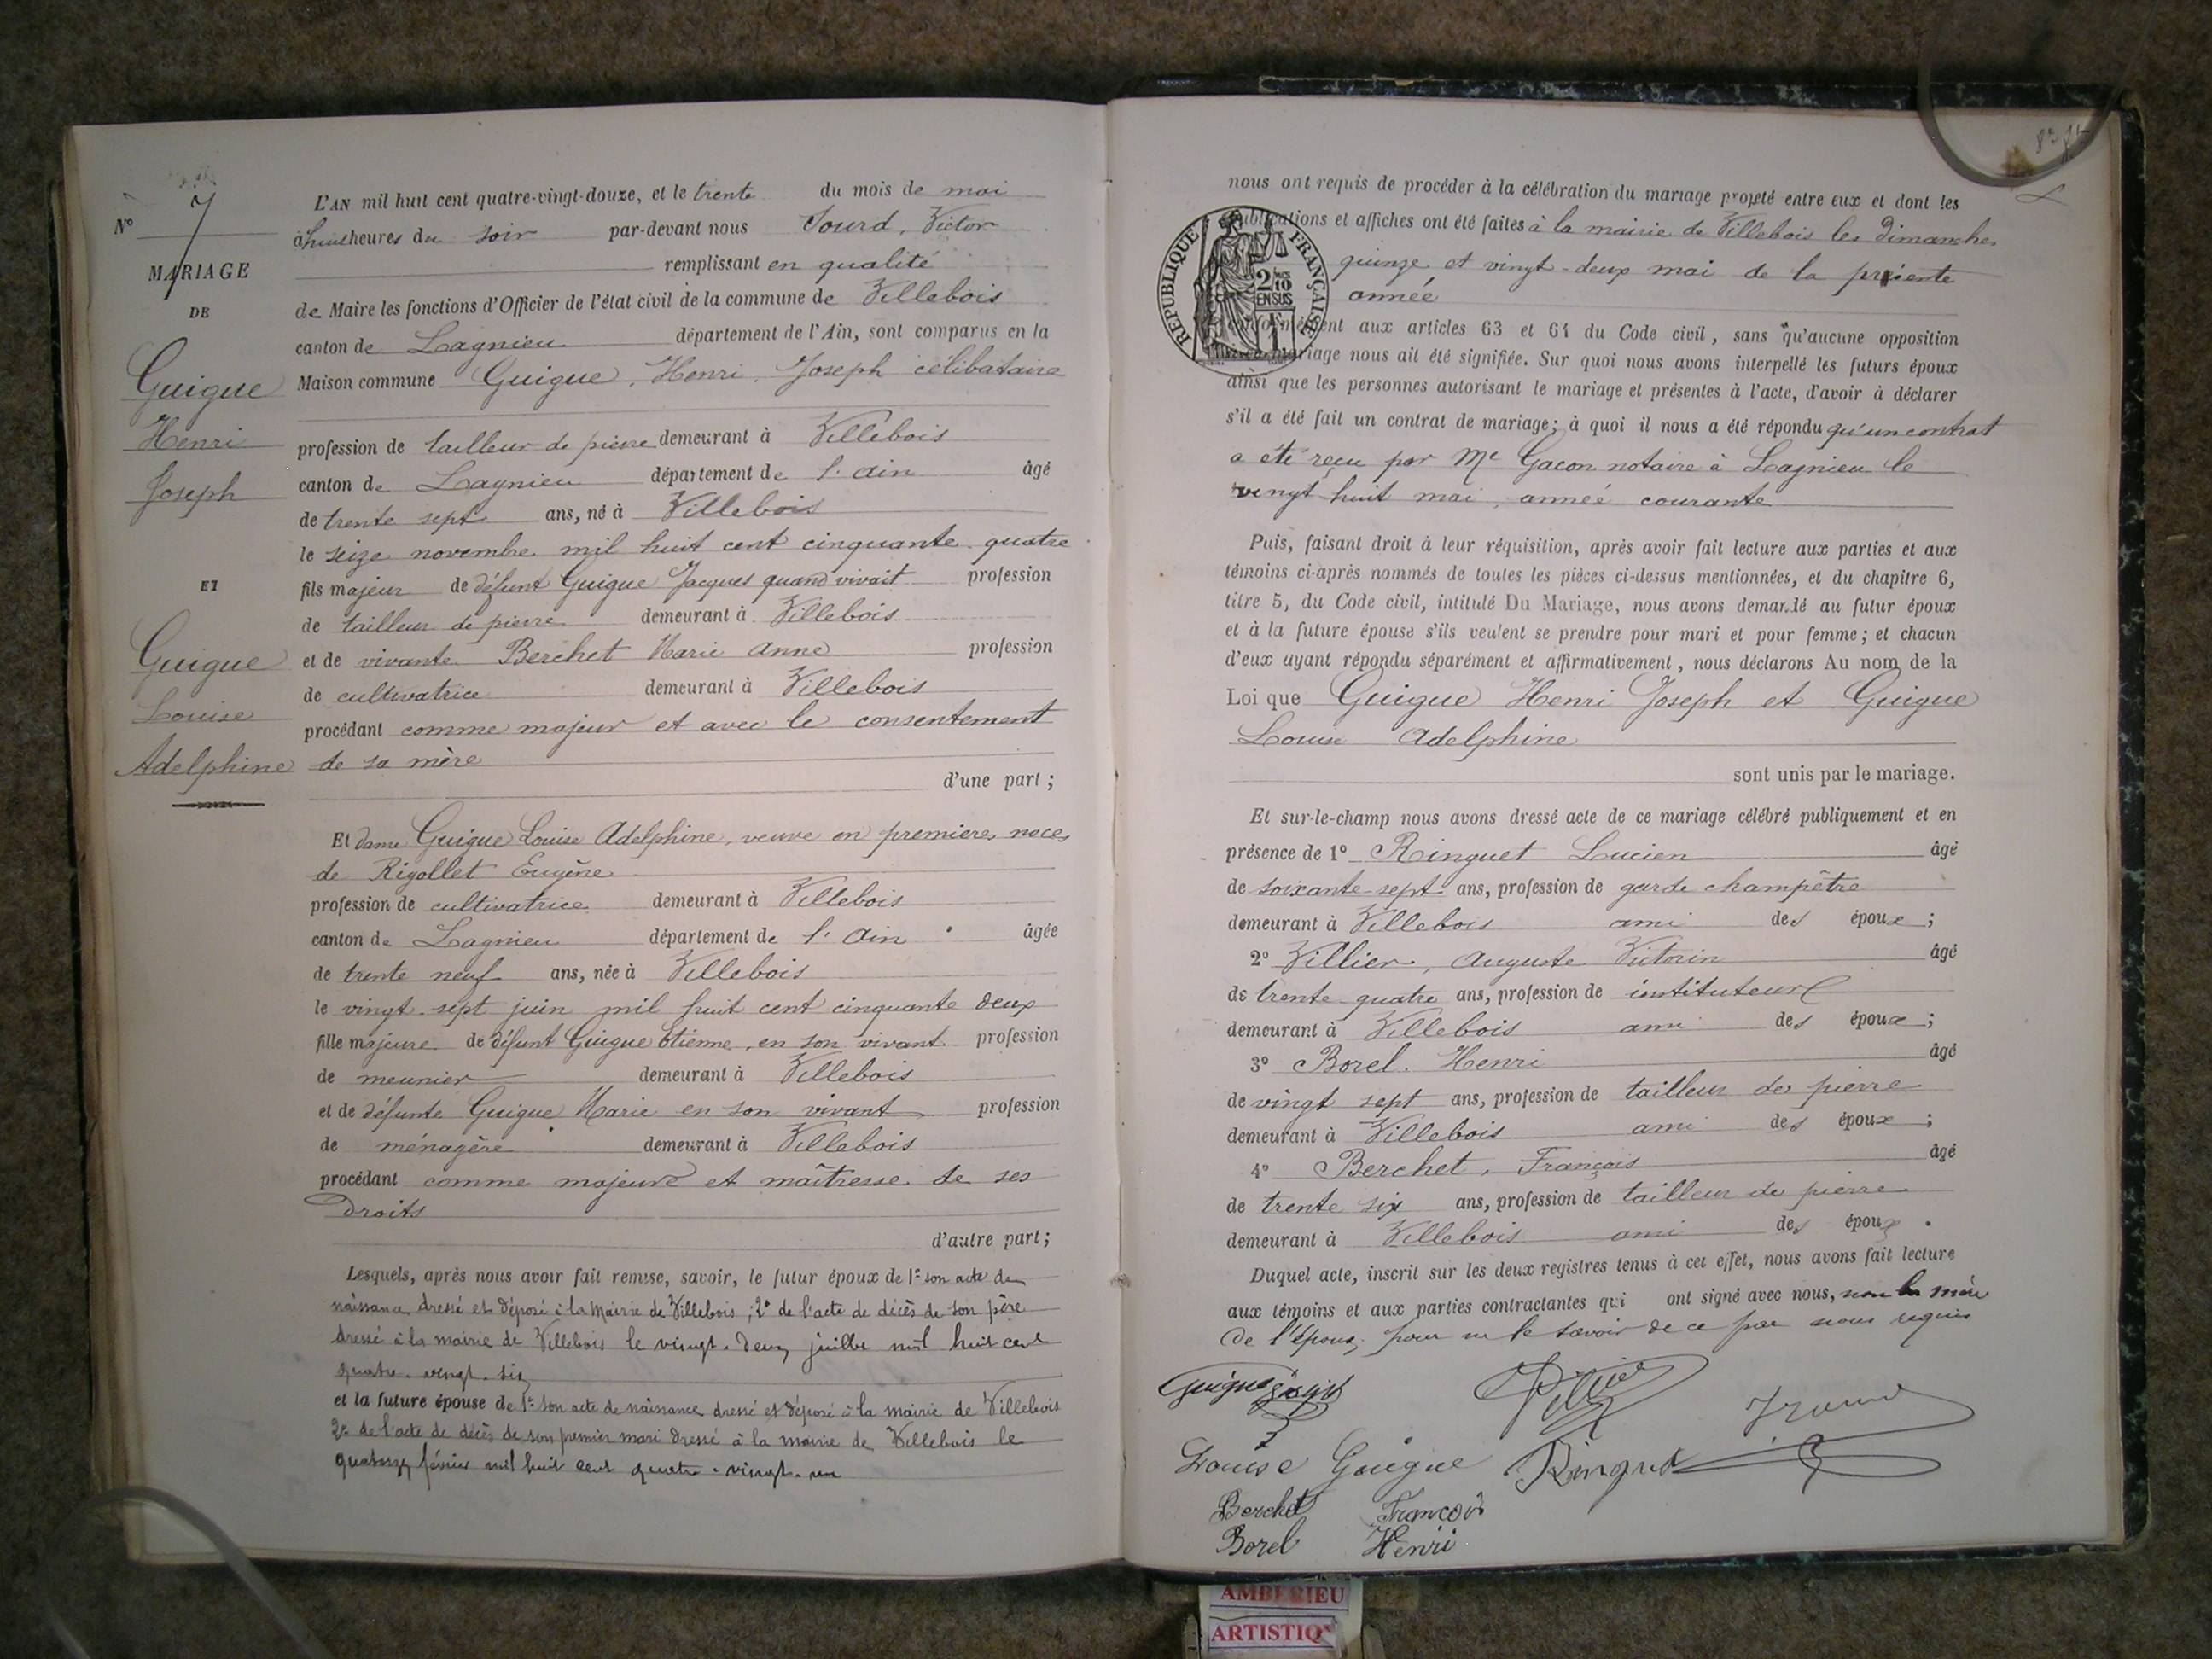 N° 7
MARIAGE
DE
Guigue
Henri
Joseph
ET
Guigue
Louise
Adelphine
L'AN mil huit cent quatre-vingt-douze, et le trente du mois de mai
à huit heures du soir par-devant nous Sourd, Victor
remplissant en qualité
de Maire les fonctions d'Officier de l'état civil de la commune de Villebois
canton de Lagnieu département de l'Ain, sont comparus en la
Maison commune Guigue, Henri, Joseph célibataire
profession de tailleur de pierre demeurant à Villebois
canton de Lagnieu département de l'ain âgé
de trente sept ans, né à Villebois
le seize novembre mil huit cent cinquante quatre
fils majeur de défunt Guigue Jacques quand vivait profession
de tailleur de pierre demeurant à Villebois
et de vivante Berchet Marie Anne profession
de cultivatrice demeurant à Villebois
procédant comme majeur et avec le consentement
de sa mère
d'une part ;
Et dame Guigue Louise Adelphine, veuve en premières noces
de Rigollet Eugène
profession de cultivatrice demeurant à Villebois
canton de Lagnieu département de l'ain âgée
de trente neuf ans, née à Villebois
le vingt-sept juin mil huit cent cinquante deux
fille majeure de défunt Guigue Etienne, en son vivant profession
de meunier demeurant à Villebois
et de défunte Guigue Marie en son vivant profession
de ménagère demeurant à Villebois
procédant comme majeure et maîtresse de ses
droits
d'autre part ;
Lesquels, après nous avoir fait remise, savoir, le futur époux de 1° son acte de
naissance dressé et déposé à la Mairie de Villebois ; 2° de l'acte de décès de son père
dressé à la mairie de Villebois le vingt-deux juillet mil huit cent
quatre-vingt-six
et la future épouse de 1° son acte de naissance dressé et déposé à la mairie de Villebois
2° de l'acte de décès de son premier mari dressé à la mairie de Villebois le
quatorze février mil huit cent quatre-vingt-un
nous ont requis de procéder à la célébration du mariage projeté entre eux et dont les
publications et affiches ont été faites à la mairie de Villebois les dimanches
quinze et vingt-deux mai de la présente
année
RÉPUBLIQUE FRANÇAISE
2/10 EN SUS
conformément aux articles 63 et 64 du Code civil, sans qu'aucune opposition
mariage nous ait été signifiée. Sur quoi nous avons interpellé les futurs époux
ainsi que les personnes autorisant le mariage et présentes à l'acte, d'avoir à déclarer
s'il a été fait un contrat de mariage ; à quoi il nous a été répondu qu'un contrat
a été reçu par Me Gacon notaire à Lagnieu le
vingt huit mai, année courante
Puis, faisant droit à leur réquisition, après avoir fait lecture aux parties et aux
témoins ci-après nommés de toutes les pièces ci-dessus mentionnées, et du chapitre 6,
titre 5, du Code civil, intitulé Du Mariage, nous avons demandé au futur époux
et à la future épouse s'ils veulent se prendre pour mari et pour femme ; et chacun
d'eux ayant répondu séparément et affirmativement, nous déclarons Au nom de la
Loi que Guigue Henri Joseph et Guigue
Louise Adelphine
sont unis par le mariage.
Et sur-le-champ nous avons dressé acte de ce mariage célébré publiquement et en
présence de 1° Ringuet Lucien âgé
de soixante-sept ans, profession de garde champêtre
demeurant à Villebois ami des époux ;
2° Villier, Auguste Victorin âgé
de trente-quatre ans, profession de instituteur
demeurant à Villebois ami des époux ;
3° Borel Henri âgé
de vingt sept ans, profession de tailleur de pierre
demeurant à Villebois ami des époux ;
4° Berchet, François âgé
de trente six ans, profession de tailleur de pierre
demeurant à Villebois ami des époux .
Duquel acte, inscrit sur les deux registres tenus à cet effet, nous avons fait lecture
aux témoins et aux parties contractantes qui ont signé avec nous, non la mère
de l'époux, pour ne le savoir de ce par nous requis
Guigue Joseph
Villier
Louise Guigue Ringuet
Berchet François
Borel Henri
AMBERIEU
ARTISTIQ